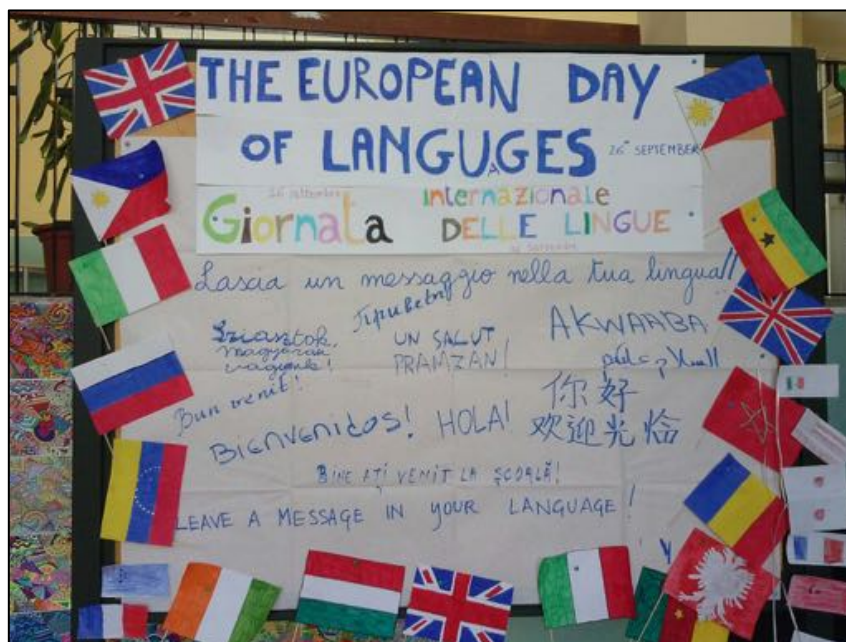 THE EUROPEAN DAY
OF LANGUAGES 26° SEPTEMBER
26 settembre
Giornata internazionale
DELLE LINGUE
26 settembre
Lascia un messaggio nella tua lingua!!
Sziasztok,
magyarok
vagyunk!
UN SALUT
PRAMZAN!
AKWAABA
Bun venit!
BIENVENIDOS! HOLA!
你好
欢迎光临
BINE AȚI VENIT LA ȘCOALĂ!
LEAVE A MESSAGE IN YOUR LANGUAGE!